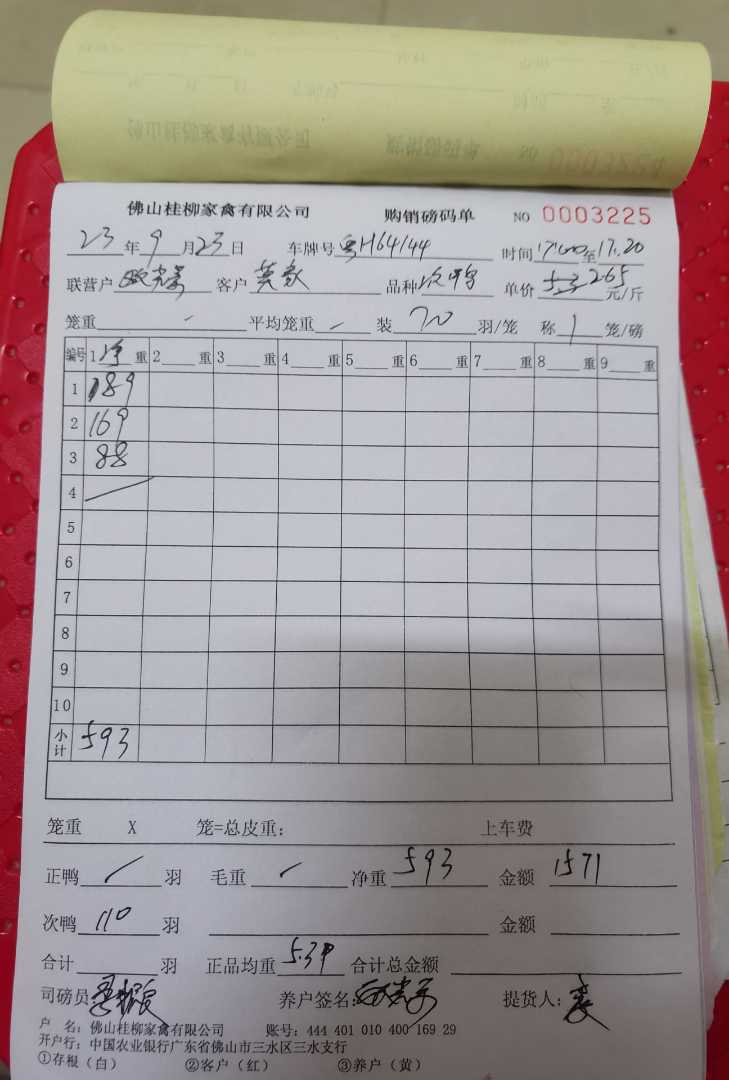 佛山桂柳家禽有限公司 购销磅码单 NO 0003225
23年9月23日 车牌号粤H64144 时间17:00至17.20
联营户 客户 品种次鸭 单价 2.65 元/斤
笼重 - 平均笼重 - 装 70 羽/笼 称 1 笼/磅
编号 1净重 2重 3重 4重 5重 6重 7重 8重 9重
1 189
2 169
3 88
4
5
6
7
8
9
10
小计 593
笼重 X 笼=总皮重: 上车费
正鸭 / 羽 毛重 / 净重 593 金额 1571
次鸭 110 羽 金额
合计 羽 正品均重 5.39 合计总金额
司磅员: 养户签名: 提货人:
户 名: 佛山桂柳家禽有限公司 账号: 444 401 010 400 169 29
开户行: 中国农业银行广东省佛山市三水区三水支行
①存根（白） ②客户（红） ③养户（黄）